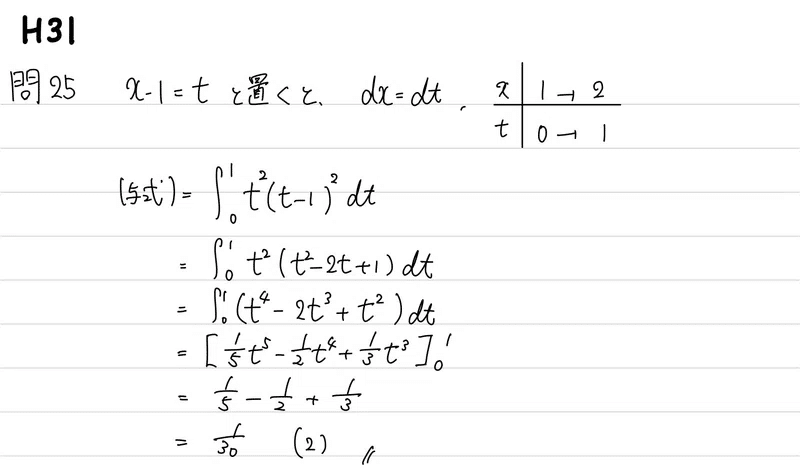 H31
問25 x-1=t と置くと、 dx=dt、 x | 1 → 2
t | 0 → 1
(与式)= ∫₀¹ t²(t-1)² dt
= ∫₀¹ t²(t²-2t+1) dt
= ∫₀¹ (t⁴-2t³+t²) dt
= [1/5 t⁵ - 1/2 t⁴ + 1/3 t³]₀¹
= 1/5 - 1/2 + 1/3
= 1/30 (2) //